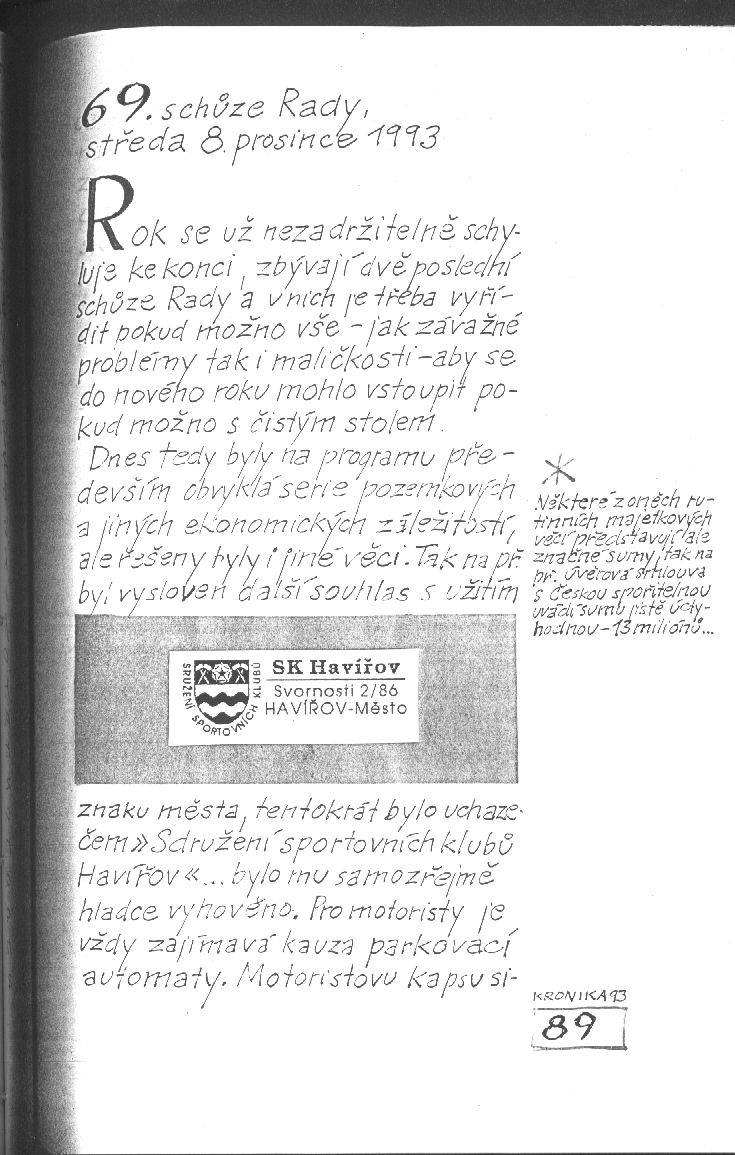 69. schůze Rady,
středa 8. prosince 1993
Rok se už nezadržitelně schy-
luje ke konci, zbývají dvě poslední
schůze Rady a v nich je třeba vyří-
dit pokud možno vše - jak závažné
problémy tak i maličkosti - aby se
do nového roku mohlo vstoupit po-
kud možno s čistým stolem.
Dnes tedy byly na programu pře-
devším obvyklá serie pozemkových
a jiných ekonomických záležitostí,
ale řešeny byly i jiné věci. Tak na př.
byl vysloven další souhlas s užitím
SK Havířov
Svornosti 2/86
HAVÍŘOV-Město
SDRUŽENÍ SPORTOVNÍCH KLUBŮ
znaku města, tentokrát bylo uchaze-
čem »Sdružení sportovních klubů
Havířov«... bylo mu samozřejmě
hladce vyhověno. Pro motoristy je
vždy zajímavá kauza parkovací
automaty. Motoristovu kapsu si-
*
Některé z oněch ru-
tinních majetkových
věcí představují ale
značné sumy, tak na
př. úvěrová smlouva
s Českou spořitelnou
uvádí sumu jistě úcty-
hodnou - 13 miliónů...
KRONIKA 93
89